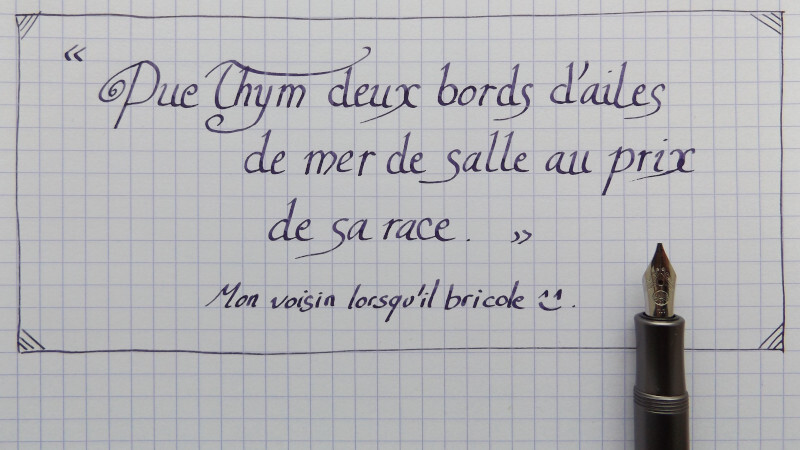 « Pue Thym deux bords d'ailes
de mer de salle au prix
de sa race. »
Mon voisin lorsqu'il bricole ^^.